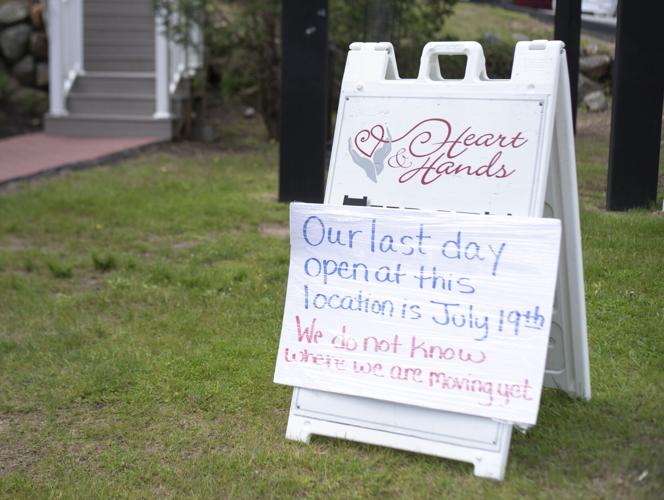 Heart
& Hands
Our last day
open at this
location is July 19th
We do not know
where we are moving yet